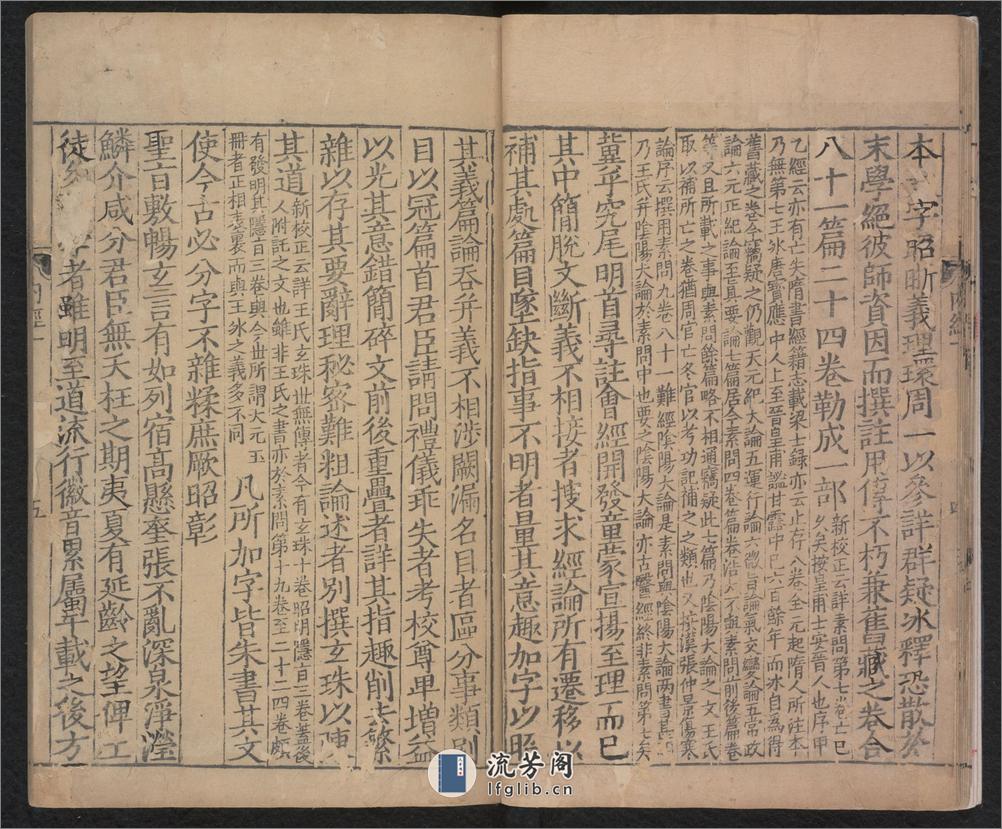 本字昭晰義理環周一以參詳群疑冰釋恐散於
末學絕彼師資因而撰註用傳不朽兼舊藏之卷合
八十一篇二十四卷勒成一部
新校正云詳素問第七卷亡已
久矣按皇甫士安晉人也序甲
乙經云亦有亡失隋書經籍志載梁七録亦云止存八卷全元起隋人所注本
乃無第七王冰唐寶應中人上至晉皇甫謐甘露中已六百餘年而冰自為得
舊藏之卷今竊疑之仍觀天元紀大論五運行論六微旨論氣交變論五常政
論六元正紀論至真要論七篇居今素問四卷篇卷浩大不與素問前後篇卷
等又且所載之事與素問餘篇略不相通竊疑此七篇乃陰陽大論之文王氏
取以補所亡之卷猶周官亡冬官以考功記補之之類也又按漢張仲景傷寒
論序云撰用素問九卷八十一難經陰陽大論是素問與陰陽大論两書
乃王氏并陰陽大論於素問中也要之陰陽大論亦古醫經終非素問第七矣
冀乎究尾明首尋註會經開發童蒙宣揚至理而已
其中簡脫文斷義不相接者搜求經論所有遷移以
補其處篇目墜缺指事不明者量其意趣加字以昭
其義篇論吞并義不相涉闕漏名目者區分事類別
目以冠篇首君臣請問禮儀乖失者考校尊卑增益
以光其意錯簡碎文前後重疊者詳其指趣削去繁
雜以存其要辭理秘密難粗論述者別撰玄珠以陳
其道
新校正云詳王氏玄珠世無傳者今有玄珠十卷昭明隱旨三卷蓋後
人附託之文也雖非王氏之書亦於素問第十九卷至二十四卷頗
有發明其隱旨三卷與今世所謂天元玉
冊者正相表裏而與王冰之義多不同
凡所加字皆朱書其文
使今古必分字不雜糅庶厥昭彰
聖旨敷暢玄言有如列宿高懸奎張不亂深泉淨瀅
鱗介咸分君臣無夭枉之期夷夏有延齡之望俾工
徒學者雖明至道流行徽音累屬千載之後方
内經一
五
流芳阁
lfglib.cn